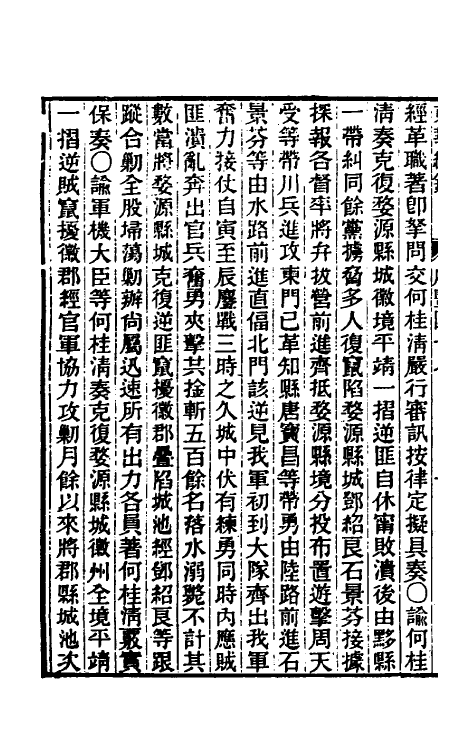 經革職著卽拏問交何桂淸嚴行審訊按律定擬具奏○諭何桂
淸奏克復婺源縣城徽境平靖一摺逆匪自休甯敗潰後由黟縣
一帶糾同餘黨擄脅多人復竄陷婺源縣城鄧紹良石景芬接據
探報各督率將弁拔營前進齊抵婺源縣境分投布置遊擊周天
受等帶川兵進攻東門已革知縣唐寶昌等帶勇由陸路前進石
景芬等由水路前進直偪北門該逆見我軍初到大隊齊出我軍
奮力接仗自寅至辰鏖戰三時之久城中伏有練勇同時內應賊
匪潰亂奔出官兵奮勇夾擊其捦斬五百餘名落水溺斃不計其
數當將婺源縣城克復逆匪竄擾徽郡疊陷城池經鄧紹良等跟
蹤合勦全股埽蕩勦辦尙屬迅速所有出力各員著何桂淸覈實
保奏○諭軍機大臣等何桂淸奏克復婺源縣城徽州全境平靖
一摺逆賊竄擾徽郡經官軍協力攻勦月餘以來將郡縣城池次